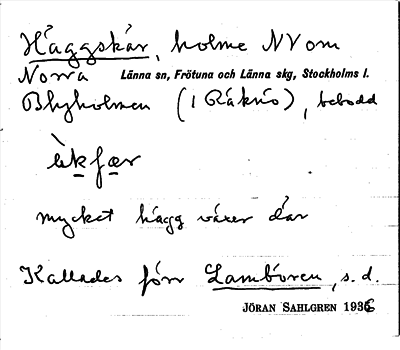 Häggskär, holme NV om
Norra Länna sn, Frötuna och Länna skg, Stockholms l.
Blyholmen (i Räknö), bebodd
mycket hägg växer där
Kallades förr Lambören, s. d.
JÖRAN SAHLGREN 1936